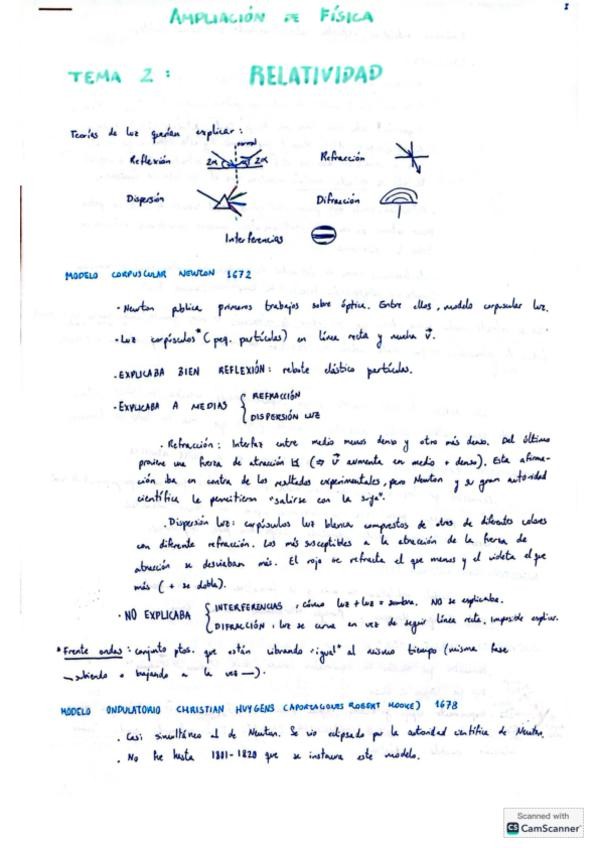 1
AMPLIACIÓN DE FÍSICA
TEMA 2: RELATIVIDAD
Teorías de luz querían explicar:
normal
Reflexión 2α 2α Refracción
Dispersión Difracción
Interferencias
MODELO CORPUSCULAR NEWTON 1672
· Newton publica primeros trabajos sobre óptica. Entre ellos, modelo corpuscular luz.
· Luz corpúsculos* (peq. partículas) en línea recta y mucha v.
· EXPLICABA BIEN REFLEXIÓN: rebote elástico partículas.
· EXPLICABA A MEDIAS { REFRACCIÓN
DISPERSIÓN LUZ
· Refracción: Interfaz entre medio menos denso y otro más denso. Del último
proviene una fuerza de atracción (⇒ v aumenta en medio + denso). Esta afirma-
ción iba en contra de los resultados experimentales, pero Newton y su gran autoridad
científica le permitieron "salirse con la suya".
· Dispersión luz: corpúsculos luz blanca compuestos de otros de diferentes colores
con diferente refracción. Los más susceptibles a la atracción de la fuerza de
atracción se desviaban más. El rojo se refracta el que menos y el violeta el que
más (+ se dobla).
· NO EXPLICABA { INTERFERENCIAS, cómo luz + luz = sombra. NO se explicaba.
DIFRACCIÓN, luz se curva en vez de seguir línea recta, imposible explicar.
* Frente ondas: conjunto ptos. que están vibrando "igual" al mismo tiempo (misma fase
— subiendo o bajando a la vez —).
MODELO ONDULATORIO CHRISTIAN HUYGENS (APORTACIONES ROBERT HOOKE) 1678
· Casi simultáneo al de Newton. Se vio eclipsado por la autoridad científica de Newton.
· No fue hasta 1801-1820 que se instaura este modelo.
Scanned with
CS CamScanner